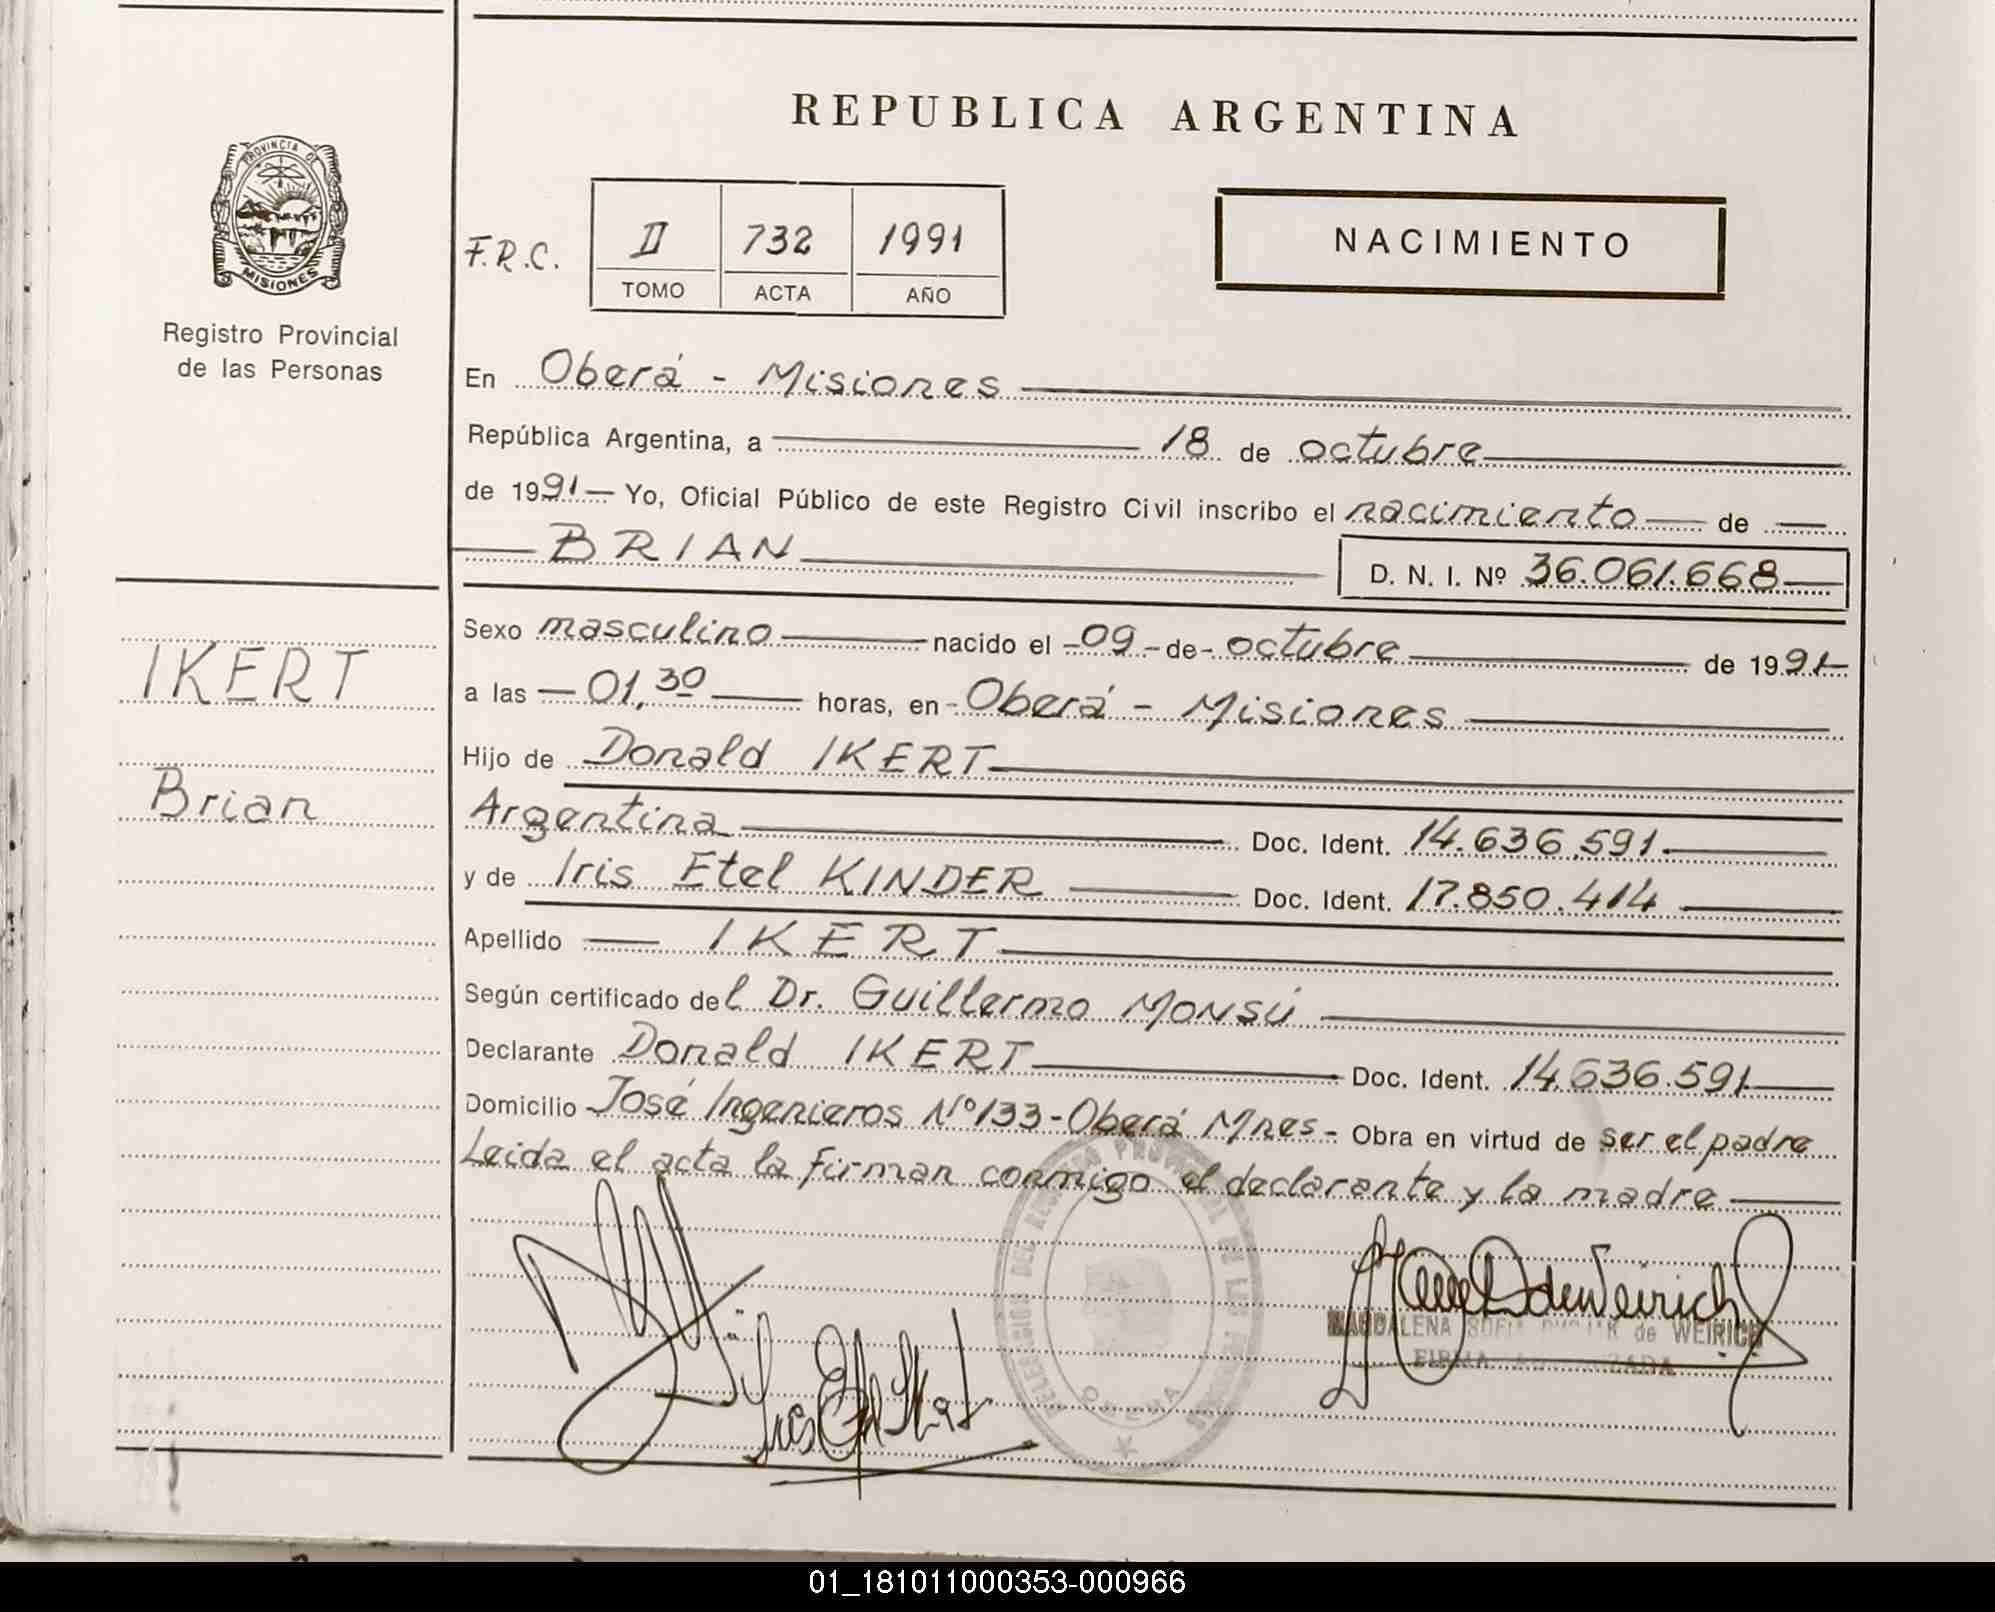 REPUBLICA ARGENTINA
PROVINCIA DE
MISIONES
Registro Provincial
de las Personas
F.R.C.
II 732 1991
TOMO ACTA AÑO
NACIMIENTO
En Oberá - Misiones
República Argentina, a 18 de octubre
de 1991 Yo, Oficial Público de este Registro Civil inscribo el nacimiento de
BRIAN D. N. I. Nº 36.061.668
IKERT
Brian
Sexo masculino nacido el 09 de octubre de 1991
a las 01,30 horas, en Oberá - Misiones
Hijo de Donald IKERT
Argentina Doc. Ident. 14.636.591
y de Iris Etel KINDER Doc. Ident. 17.850.414
Apellido IKERT
Según certificado del Dr. Guillermo MONSÚ
Declarante Donald IKERT Doc. Ident. 14.636.591
Domicilio José Ingenieros Nº 133 - Oberá Mnes - Obra en virtud de ser el padre
Leida el acta la firman conmigo el declarante y la madre
Iris Etel Ikert
MAGDALENA SOFIA de WEIRICH
FIRMA AUTORIZADA
OBERA
01_181011000353-000966